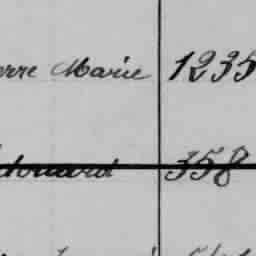 erre Marie 1235
douard 358